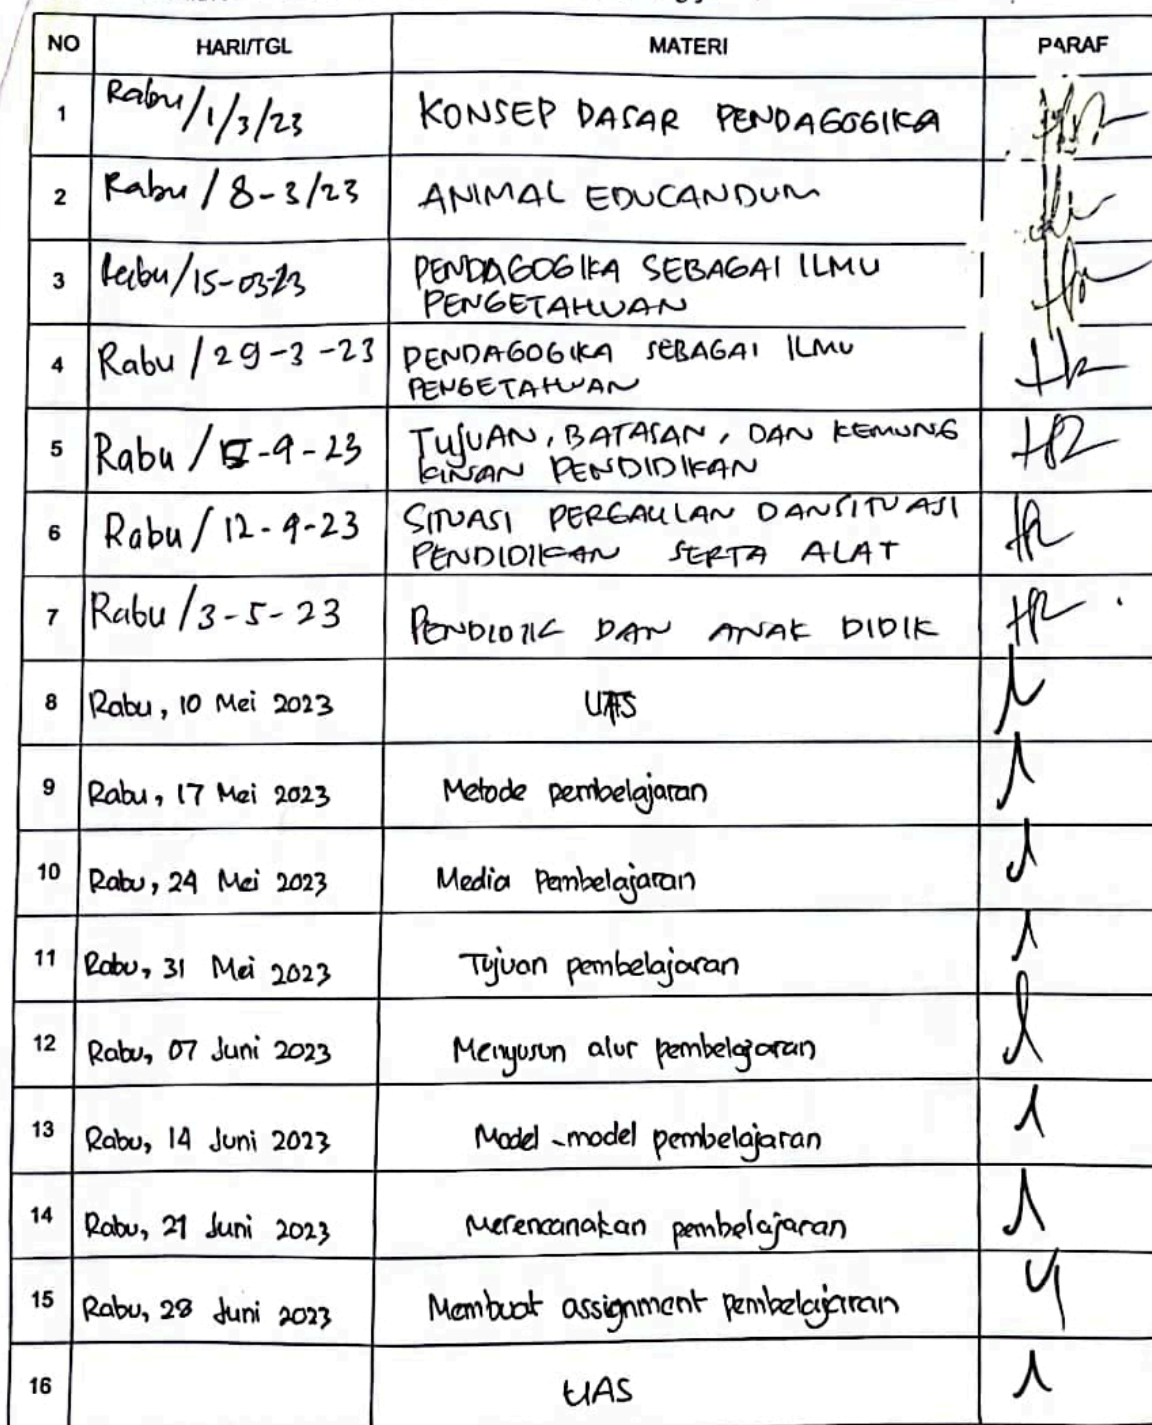 NO HARI/TGL MATERI PARAF
1 Rabu/1/3/23 KONSEP DASAR PENDAGOGIKA
2 Rabu / 8-3/23 ANIMAL EDUCANDUM
3 Rabu/15-03-23 PENDAGOGIKA SEBAGAI ILMU
PENGETAHUAN
4 Rabu / 29-3-23 PENDAGOGIKA SEBAGAI ILMU
PENGETAHUAN
5 Rabu / 5-4-23 TUJUAN, BATASAN, DAN KEMUNG
KINAN PENDIDIKAN
6 Rabu / 12-4-23 SITUASI PERGAULAN DAN SITUASI
PENDIDIKAN SERTA ALAT
7 Rabu / 3-5-23 PENDIDIK DAN ANAK DIDIK
8 Rabu, 10 Mei 2023
9 Rabu, 17 Mei 2023 Metode pembelajaran
10 Rabu, 24 Mei 2023 Media Pembelajaran
11 Rabu, 31 Mei 2023 Tujuan pembelajaran
12 Rabu, 07 Juni 2023 Menyusun alur pembelajaran
13 Rabu, 14 Juni 2023 Model-model pembelajaran
14 Rabu, 21 Juni 2023 Merencanakan pembelajaran
15 Rabu, 28 Juni 2023 Membuat assignment pembelajaran
16 UAS